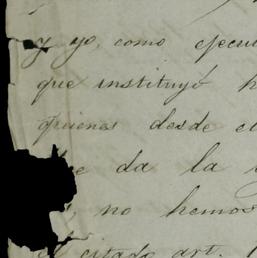 y yo, como ejecu
que instituyó h
quienes desde e
da la
no hemos
estado art.